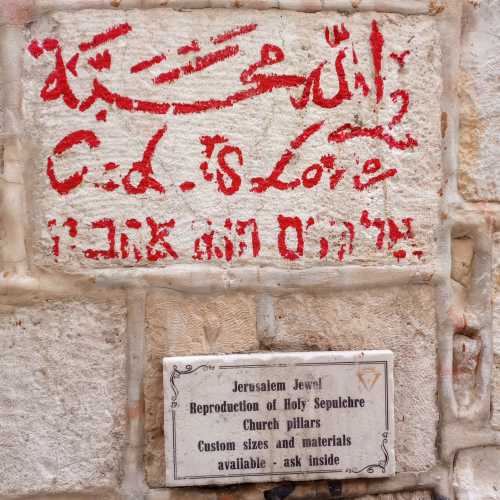 الله محبّة
God is Love
אלהים הוא אהבה
Jerusalem Jewel
Reproduction of Holy Sepulchre
Church pillars
Custom sizes and materials
available - ask inside